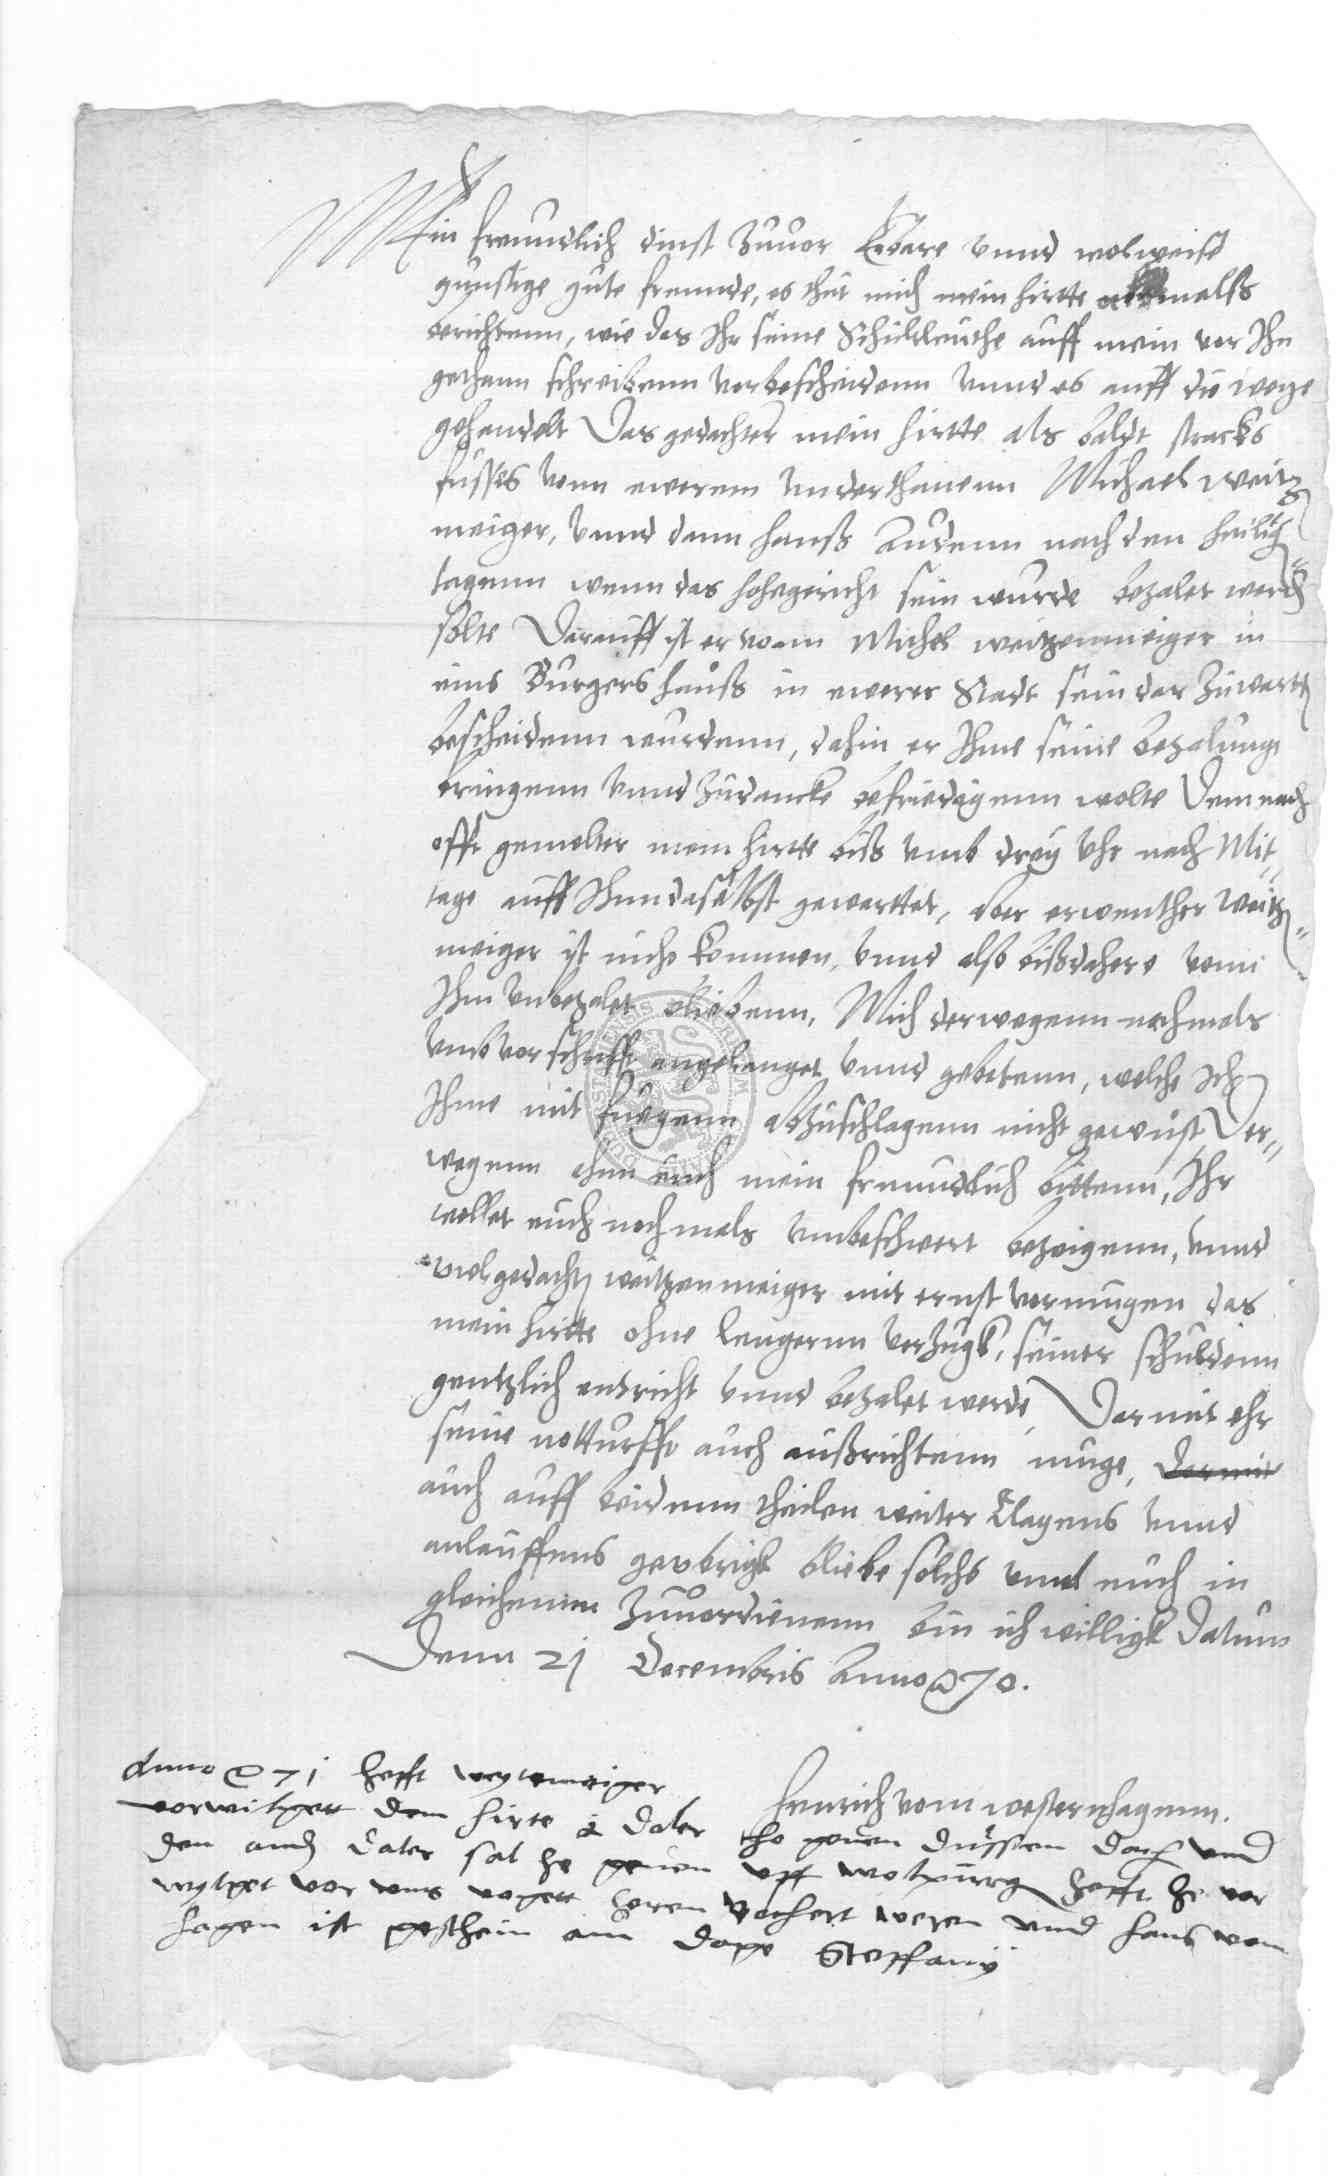 Mein freundlich dinst zuuor Erbare vnnd wolweise
gunstige gute freunde, es thut mich mein hirtte abermalss
berichtenn, wie das Ihr seine Schuldleuthe auff mein vor Ihn
gethann schreibenn vorbescheidenn vnnd es auff die wege
gehandelt Das gedachter mein hirtte als baldt stracks
fusses vonn ewerem vnderthanenn Michael weitz
meiger, vnnd dann hanss Andenn nach den heilig
tagenn wenn das hohegericht sein wurde bezalet werden
solte Darauff ist er vonn Michel weitzenmeiger in
eins Burgers hauss in ewerer Stadt sein dar zuwartten
bescheidenn wurdenn, dahin er Ihme seine bezalunge
bringenn vnnd zudancke befriedigenn wolte Dem nach
offt gemelter mein hirtte biss vmb drey vhr nach Mit-
tage auff Ihnn daselbst gewarttet, aber erwenther Weitz-
meiger ist nicht kommen, vnnd also bissdahero vonn
Ihm vnbezalet bliebenn, Mich derwegenn nochmals
vmb vorschrifft angelanget vnnd gebetenn, welche Ich
Ihme mit fuegenn abzuschlagenn nicht gewust Der-
wegenn ahnn euch mein freundlich bittenn, Ihr
wollet euch nochmals vnbeschwert bezeigenn, vnnd
vielgedachten weitzenmeiger mit ernst vermugen das
mein hirtte ohne lengernn verzugk, seiner schuldenn
gentzlich entricht vnnd bezalet werde, Dar mit ehr
seine notturfft auch aussrichtenn muge, Darmit
auch auff beidenn theilen weiter Clagens vnnd
anlauffens geubrigt bliebe solchs vmb euch in
gleichenn zuuordienenn bin ich willigk Datum
Denn 21 Decembris Anno 70.
Henrich vom westernhagenn.
Anno 71 hefft weytemeiger
vorwilget dem hirte 1 daler tho geuen dussen dach vnd
den andern daler sal he geuen vpp wolpurg hefft he vor
wylget vor vns voget heren weren vnd hans von
hagen ist geschein am dage Steffanij